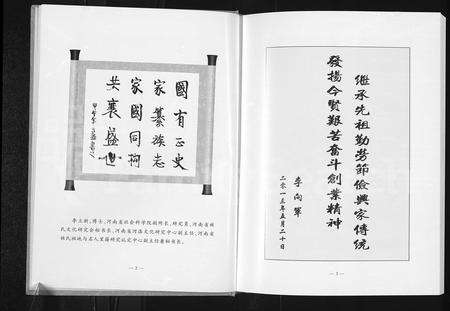 國有正史
家纂族志
家國同功
共襄盛世
甲午年
李立新,博士,河南省社会科学院副所长、研究员,河南省姓
氏文化研究会秘书长,河南省河洛文化研究中心副主任,河南省
姓氏祖地与名人里籍研究认定中心副主任兼秘书长。
— 2 —
继承先祖勤劳節儉興家傳统
發揚今賢艱苦奮斗創業精神
李向军
二零一三年五月二十日
— 3 —